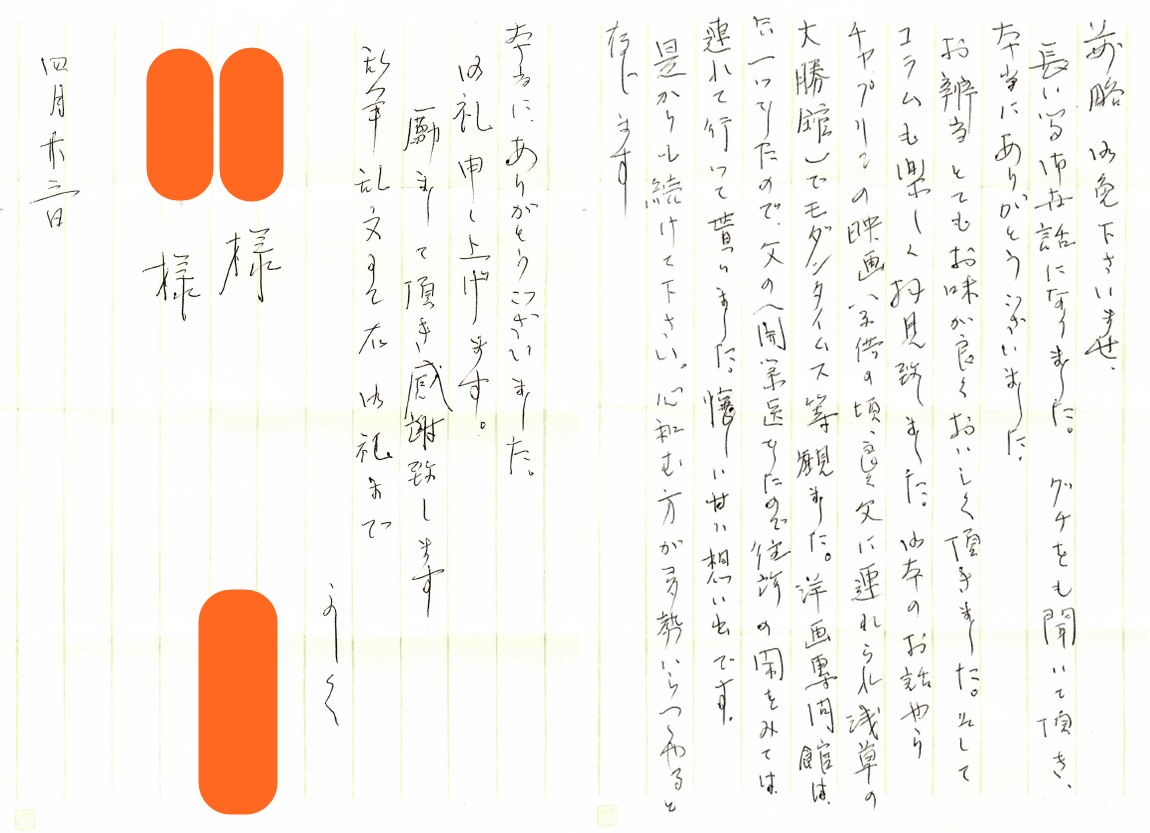 前略 御免下さいませ、
長い間御世話になりました。 グチをも聞いて頂き、
本当にありがとうございました。
お辨当とてもお味が良くおいしく頂きました。そして
コラムも楽しく拝見致しました。御本のお話やら
チャプリンの映画(子供の頃、良く父に連れられ浅草の
大勝館)でモダンタイムス等観ました。洋画専門館は
だったので、父の(開業医をしたので往診の関をみては
連れて行って貰いました。懐しい甘い想い出です。
是からも続けて下さい。心和む方が多勢いらっしゃると
存じます
本当にありがとうございました。
御礼申し上げます。
励まして頂き感謝致します
乱筆乱文にて 御礼まで
かしく
様
様
四月 三日